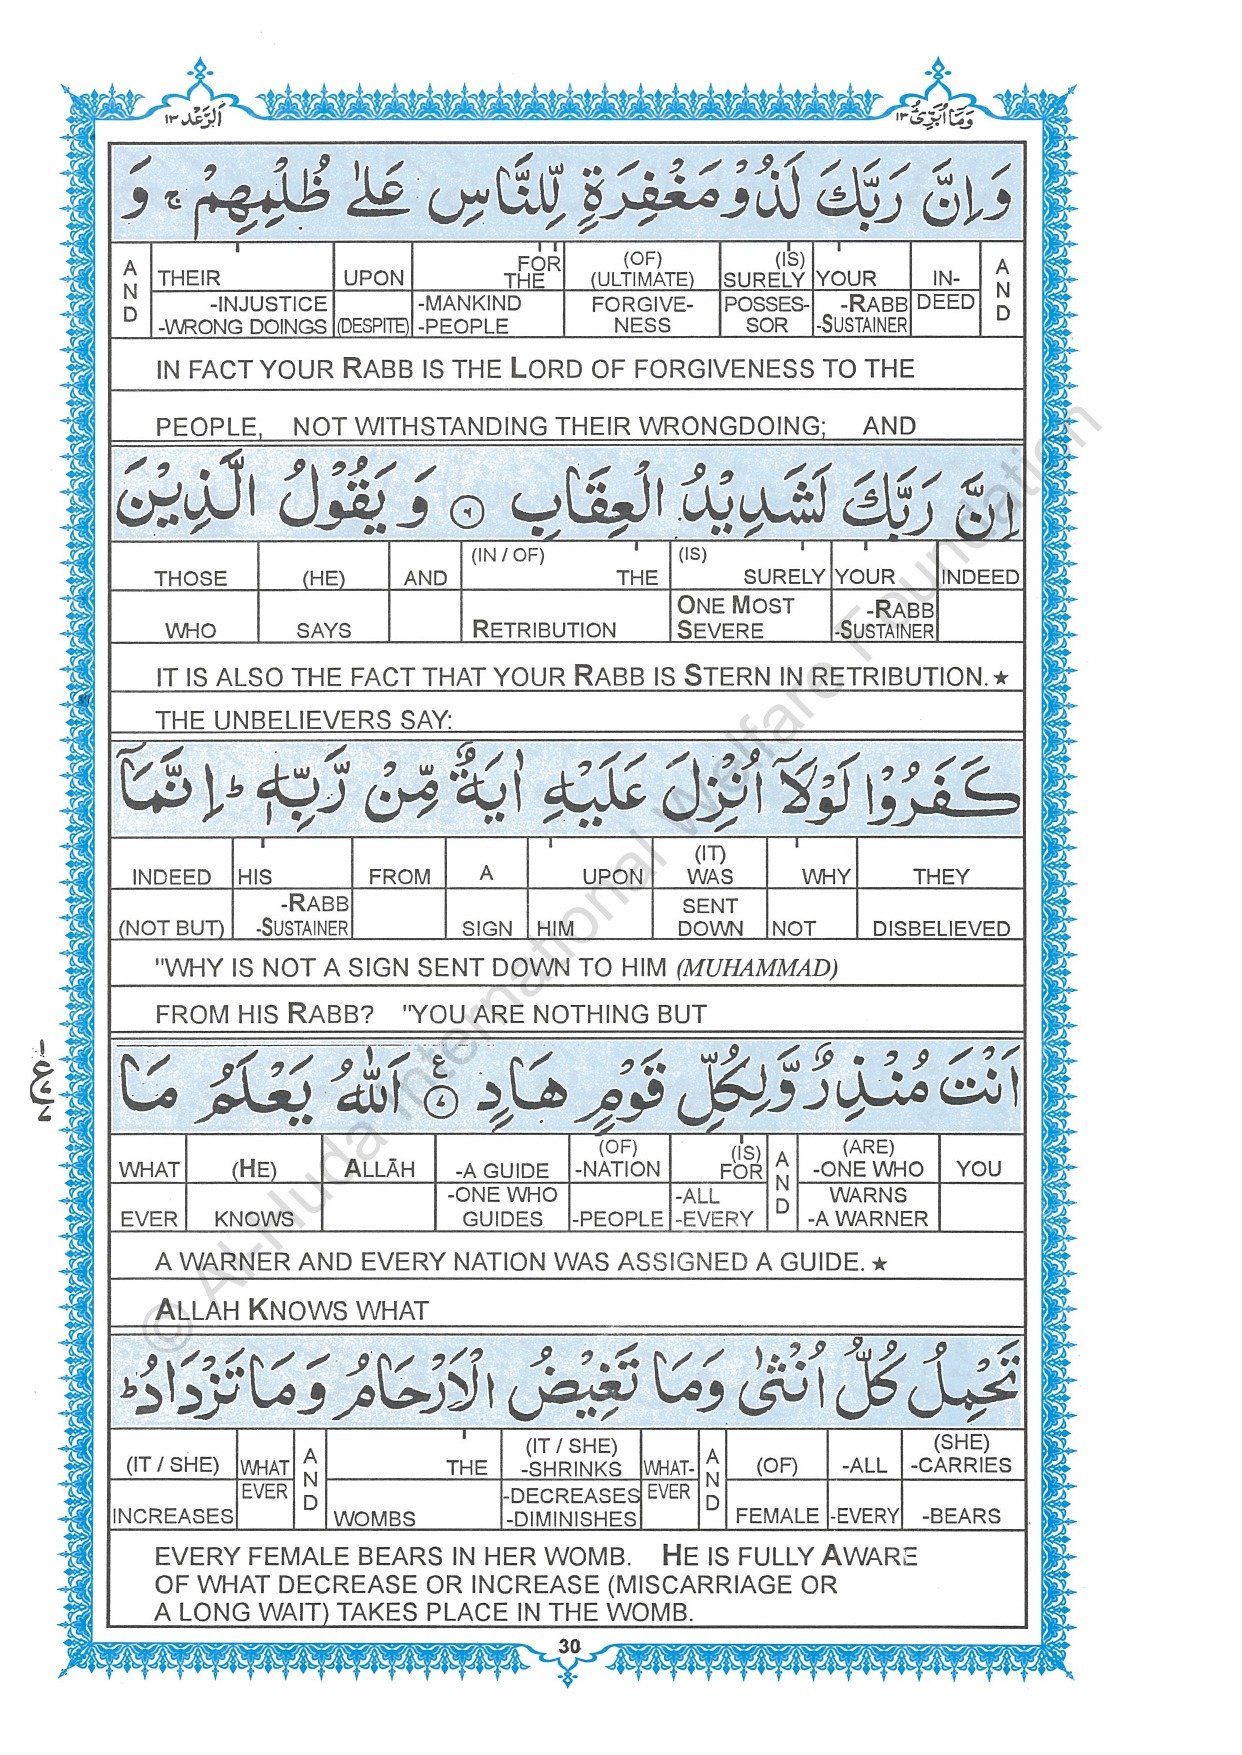 اَلرَّعْد ١٣
وَمَا اُبَرِّئُ ١٣
وَ اِنَّ رَبَّكَ لَذُوْ مَغْفِرَةٍ لِّلنَّاسِ عَلٰى ظُلْمِهِمْ ۚ وَ
AND THEIR UPON FOR THE (OF) (ULTIMATE) (IS) SURELY YOUR IN- AND
-INJUSTICE -WRONG DOINGS (DESPITE) -MANKIND -PEOPLE FORGIVE-NESS POSSES-SOR -RABB -SUSTAINER DEED
IN FACT YOUR RABB IS THE LORD OF FORGIVENESS TO THE
PEOPLE, NOT WITHSTANDING THEIR WRONGDOING; AND
اِنَّ رَبَّكَ لَشَدِيْدُ الْعِقَابِ ۝٦ وَ يَقُوْلُ الَّذِيْنَ
THOSE (HE) AND (IN / OF) THE (IS) SURELY YOUR INDEED
WHO SAYS RETRIBUTION ONE MOST SEVERE -RABB -SUSTAINER
IT IS ALSO THE FACT THAT YOUR RABB IS STERN IN RETRIBUTION.★
THE UNBELIEVERS SAY:
كَفَرُوْا لَوْلَاۤ اُنْزِلَ عَلَيْهِ اٰيَةٌ مِّنْ رَّبِّهٖ ؕ اِنَّمَاۤ
INDEED HIS FROM A UPON (IT) WAS WHY THEY
(NOT BUT) -RABB -SUSTAINER SIGN HIM SENT DOWN NOT DISBELIEVED
"WHY IS NOT A SIGN SENT DOWN TO HIM (MUHAMMAD)
FROM HIS RABB? "YOU ARE NOTHING BUT
اَنْتَ مُنْذِرٌ وَّ لِكُلِّ قَوْمٍ هَادٍ ۝٧ ع اَللّٰهُ يَعْلَمُ مَا
WHAT (HE) ALLĀH -A GUIDE (OF) -NATION (IS) FOR AND (ARE) -ONE WHO YOU
EVER KNOWS -ONE WHO GUIDES -PEOPLE -ALL -EVERY WARNS -A WARNER
A WARNER AND EVERY NATION WAS ASSIGNED A GUIDE. ★
ALLAH KNOWS WHAT
تَحْمِلُ كُلُّ اُنْثٰى وَمَا تَغِيْضُ الْاَرْحَامُ وَمَا تَزْدَادُ ؕ
(IT / SHE) WHAT AND THE (IT / SHE) -SHRINKS WHAT- AND (OF) -ALL (SHE) -CARRIES
INCREASES EVER WOMBS -DECREASES -DIMINISHES EVER FEMALE -EVERY -BEARS
EVERY FEMALE BEARS IN HER WOMB. HE IS FULLY AWARE
OF WHAT DECREASE OR INCREASE (MISCARRIAGE OR
A LONG WAIT) TAKES PLACE IN THE WOMB.
30
© Al-Huda International Welfare Foundation